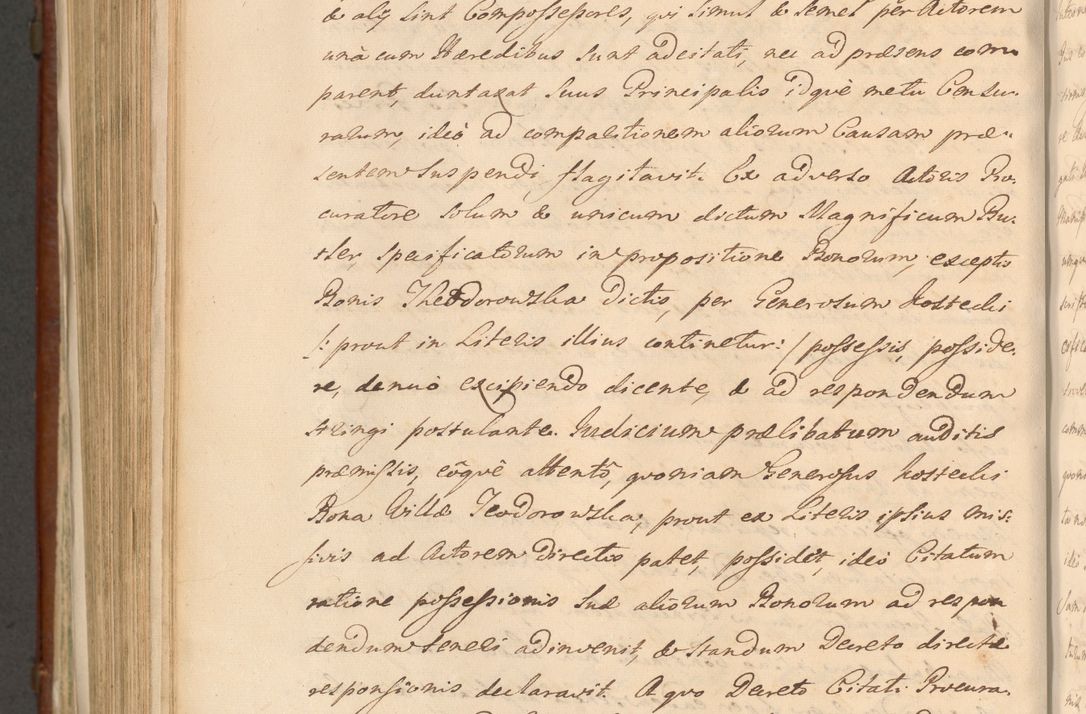 & alij sint Compossessores, qvi simul & semel per Actorem
unà cum Hæredibus sunt adcitati, nec ad præsens com
parent, duntaxat suus Principalis idqvè metu Censu-
rarum, ideò ad comparitionem aliorum Causam præ-
sentem suspendi flagitavit. Ex adverso Actoris Pro-
curatore solum & unicum dictum Magnificum Bu-
tler, specificatorum in propositione Bonorum, exceptis
Bonis Theodorowska dictis, per Generosum Kostecki
/: prout in Literis illius continetur: / possessis, posside-
re, denuò excipiendo dicente, & ad respondendum
stringi postulante. Judicium prælibatum auditis
præmissis, eôqvè attentô, qvoniam Generosus Kostecki
Bona Villæ Teodorowska, prout ex Literis ipsius mis-
sivis ad Actorem directis patet, possidet, ideò Citatum
ratione possessionis suæ aliorum Bonorum ad respon
dendum teneri adinvenit, & standum Decreto directe
responsionis declaravit. A qvo Decreto Citati Procura-